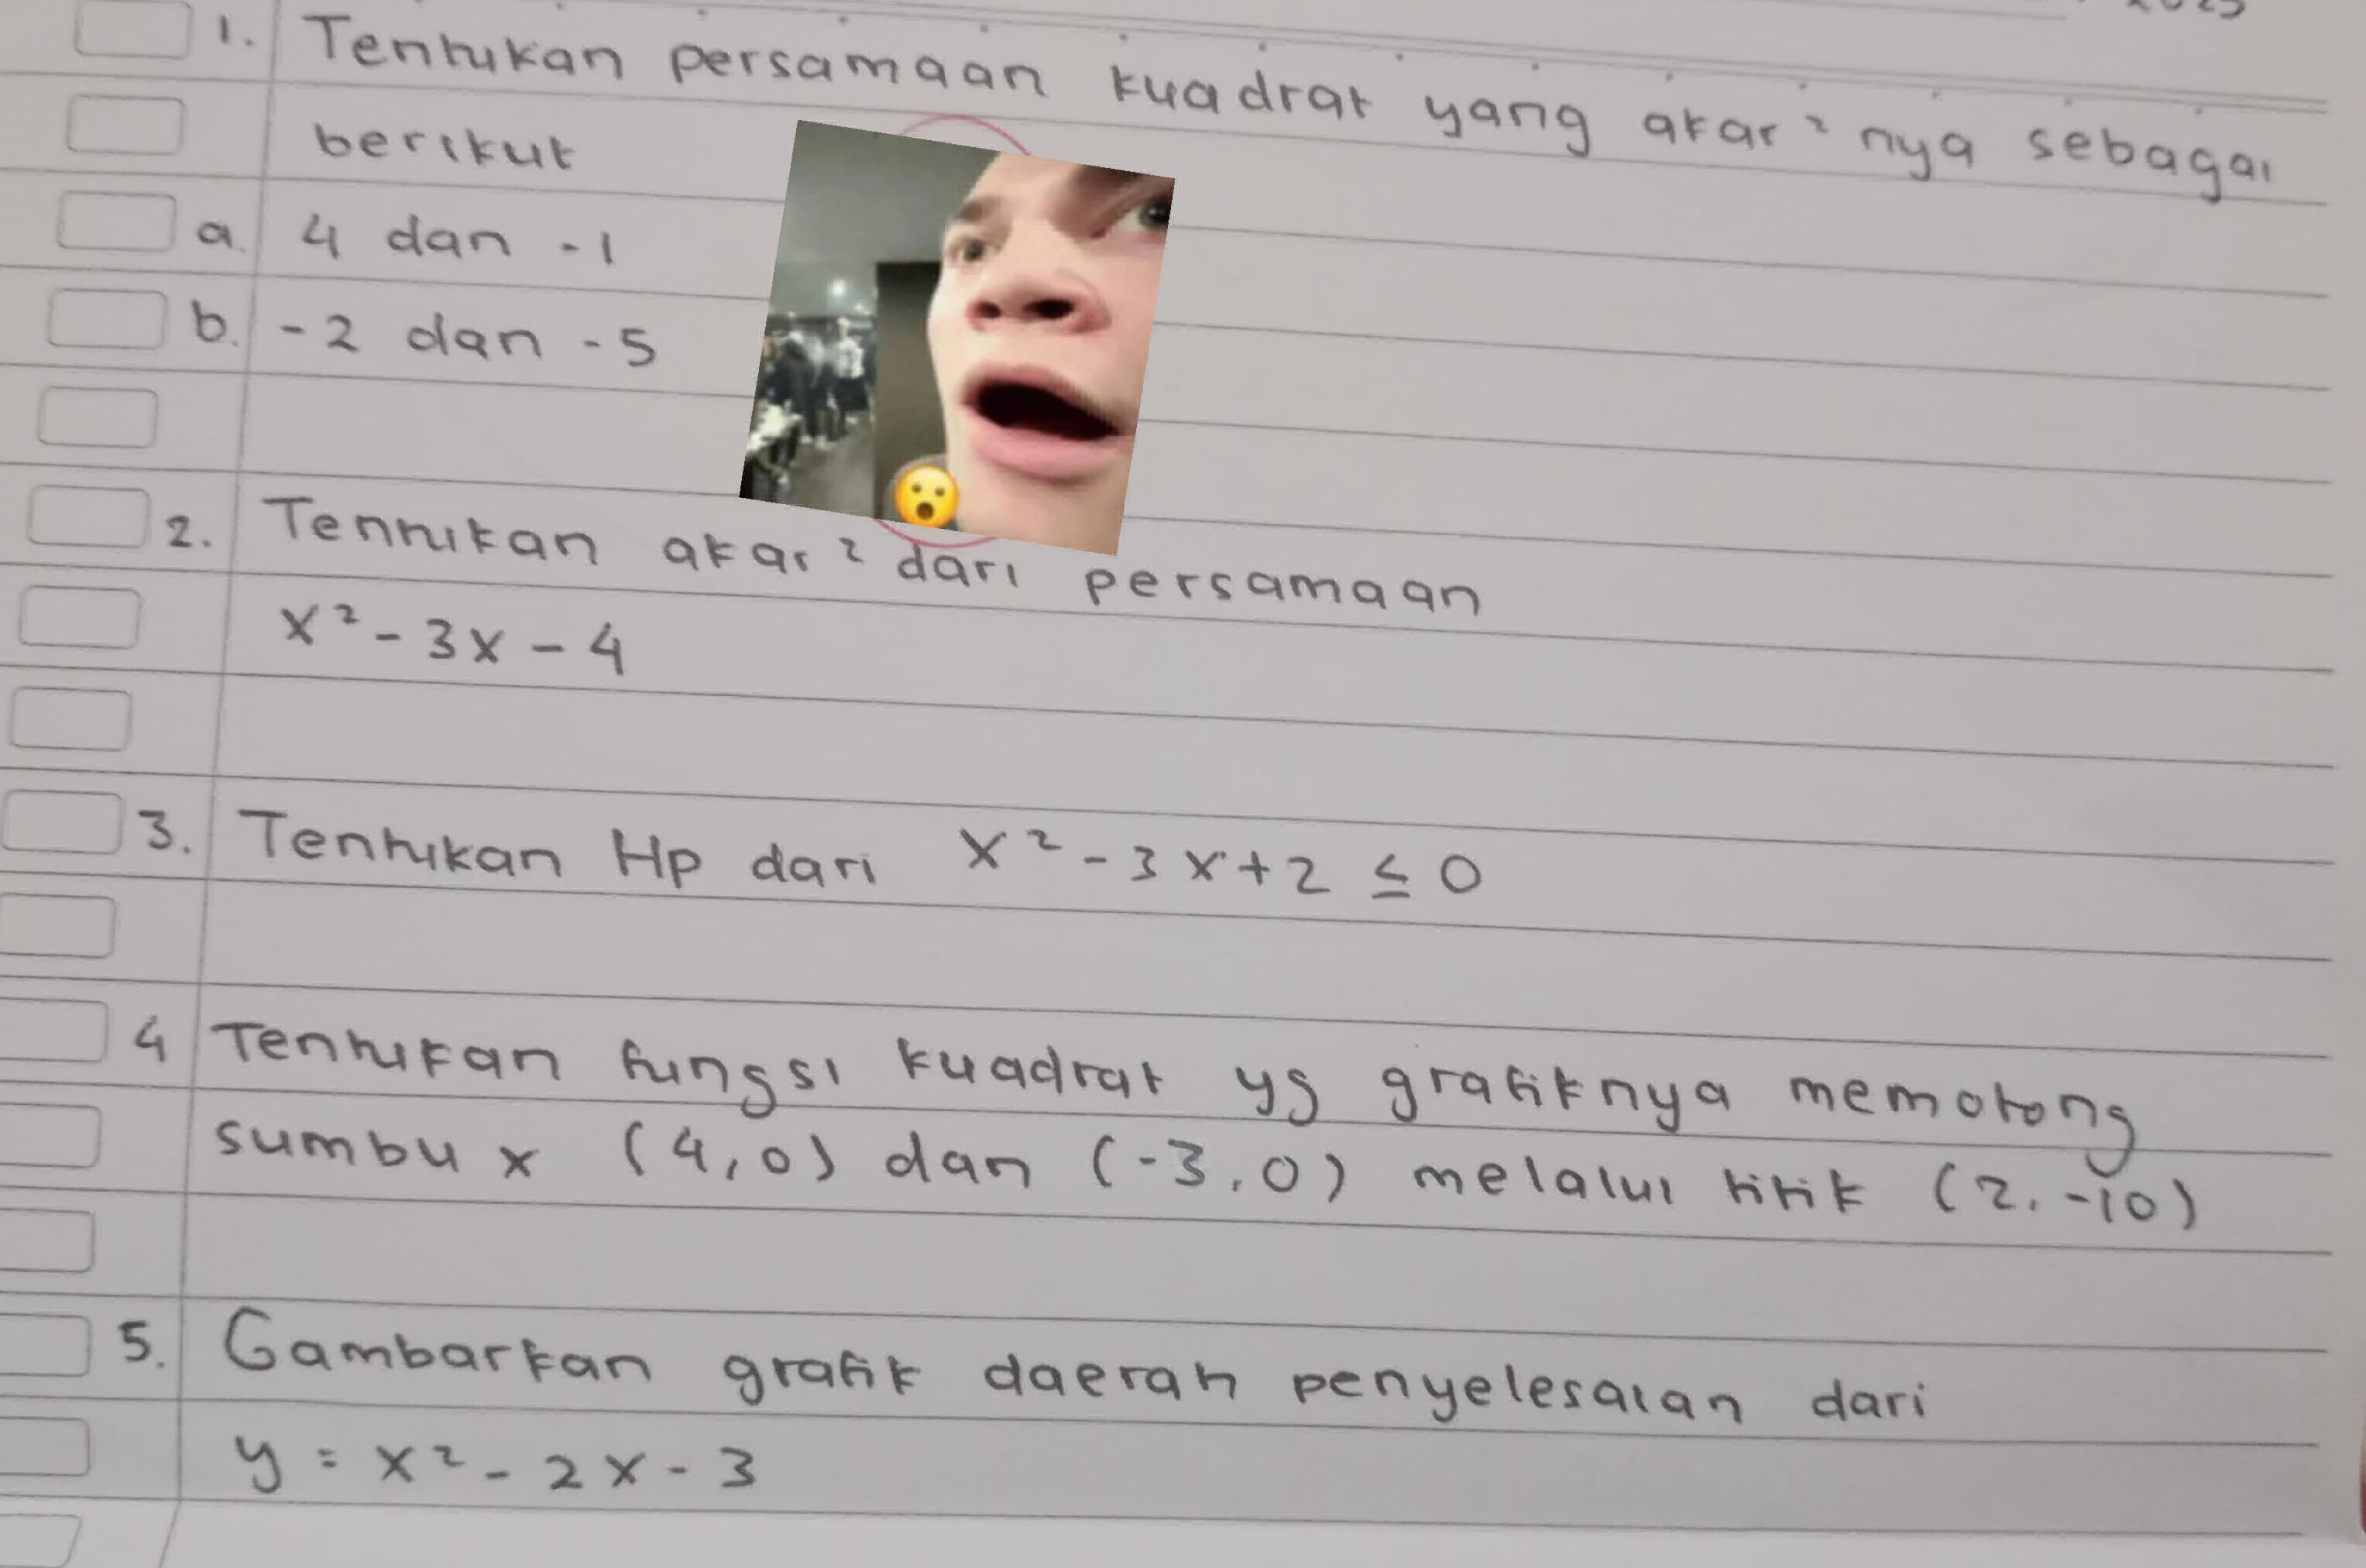 2025
1. Tentukan persamaan kuadrat yang akar² nya sebagai
berikut
a. 4 dan -1
b. -2 dan -5
2. Tentukan akar² dari persamaan
x² - 3x - 4
3. Tentukan Hp dari x² - 3x + 2 ≤ 0
4 Tentukan fungsi kuadrat yg grafiknya memotong
sumbu x (4,0) dan (-3,0) melalui titik (2,-10)
5. Gambarkan grafik daerah penyelesaian dari
y = x² - 2x - 3